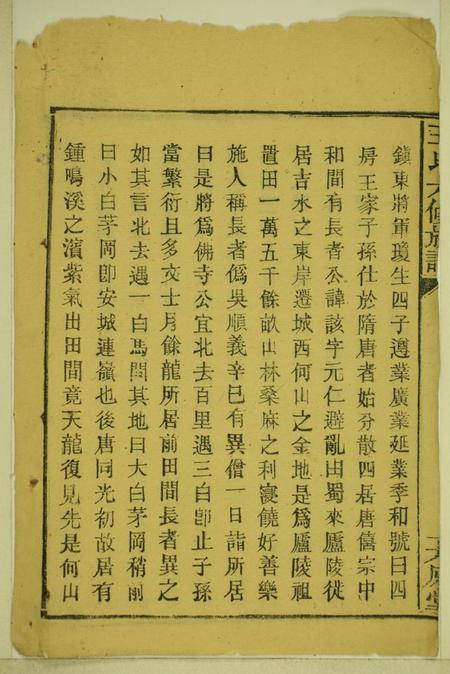 王氏六修族譜
鎮東將軍瓊生四子遵業廣業延業季和號曰四
房王家子孫仕於隋唐者始分散四居唐僖宗中
和間有長者公諱該字元仁避亂由蜀來廬陵徙
居吉水之東岸遷城西何山之金地是爲廬陵祖
置田一萬五千餘畝山林桑麻之利寖饒好善樂
施人稱長者僞吳順義辛巳有異僧一日詣所居
曰是將爲佛寺公宜北去百里遇三白卽止子孫
當繁衍且多文士月餘龍所居前田間長者異之
如其言北去遇一白馬問其地曰大白茅岡稍前
曰小白茅岡卽安城連嶺也後唐同光初故居有
鍾鳴溪之濱紫氣出田間竟天龍復見先是何山